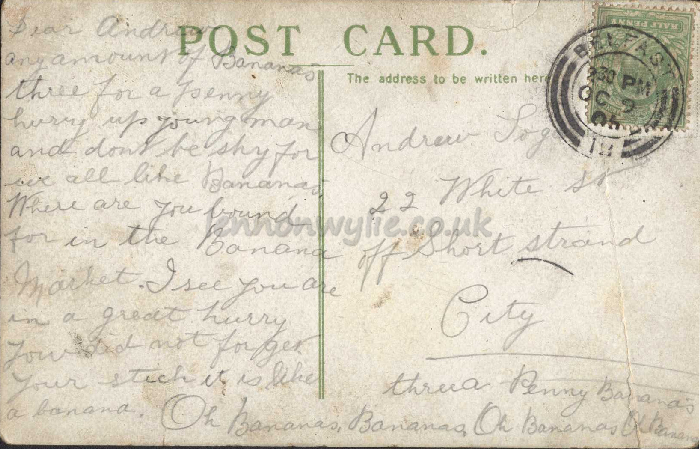 POST CARD.
The address to be written here
HALF PENNY
BELFAST
2 30 PM
OC 2
05
Dear Andrew
any amount of Bananas
three for a penny
hurry up young man
and dont be shy for
we all like Bananas
Where are you bound
for in the Banana
Market. I see you are
in a great hurry
you did not forget
your stick it is like
a banana. Oh Bananas, Bananas, Oh Bananas Oh Banan
Andrew
22 White St
off Short strand
City
three a Penny Bananas
lennonwylie.co.uk